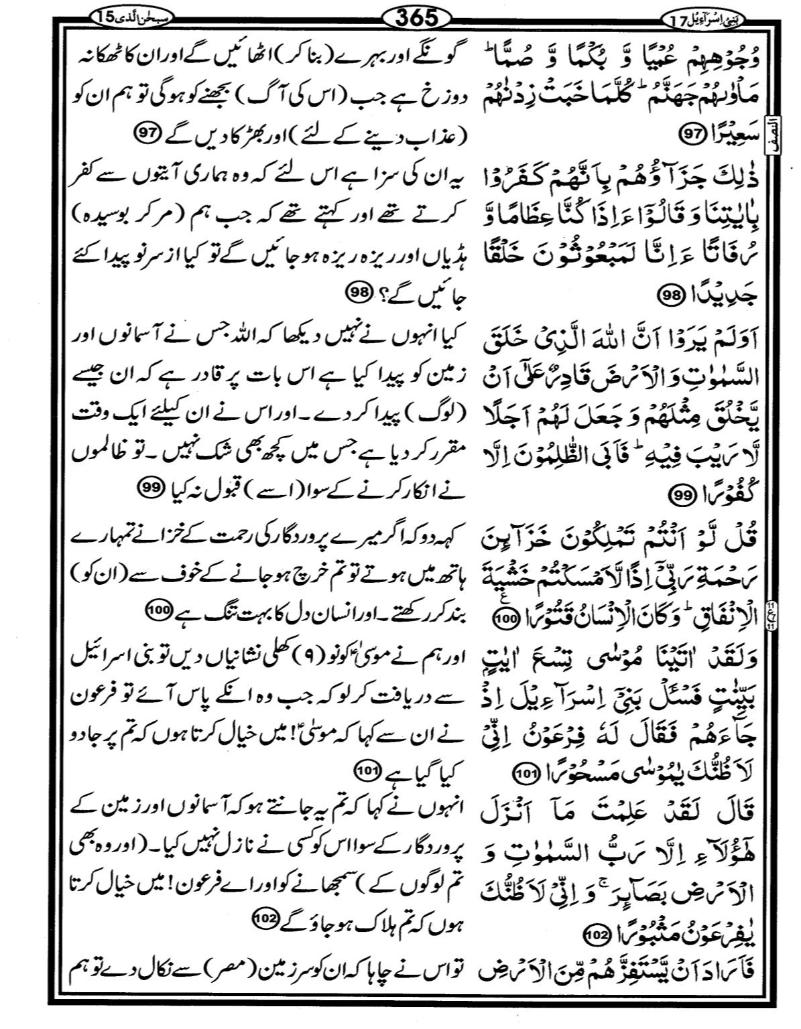 بنی اسراءیل 17
365
سبحٰن الذی 15
وُجُوۡهِهِمۡ عُمۡيًا وَّ بُكۡمًا وَّ صُمًّا ؕ
مَاۡوٰٮهُمۡ جَهَنَّمُ ؕ كُلَّمَا خَبَتۡ زِدۡنٰهُمۡ
سَعِيۡرًا 97
ذٰلِكَ جَزَآؤُهُمۡ بِاَنَّهُمۡ كَفَرُوۡا
بِاٰيٰتِنَا وَ قَالُوۡۤا ءَاِذَا كُنَّا عِظَامًا وَّ
رُفَاتًا ءَاِنَّا لَمَبۡعُوۡثُوۡنَ خَلۡقًا
جَدِيۡدًا 98
اَوَلَمۡ يَرَوۡا اَنَّ اللّٰهَ الَّذِىۡ خَلَقَ
السَّمٰوٰتِ وَ الۡاَرۡضَ قَادِرٌ عَلٰٓى اَنۡ
يَّخۡلُقَ مِثۡلَهُمۡ وَ جَعَلَ لَهُمۡ اَجَلًا
لَّا رَيۡبَ فِيۡهِ ؕ فَاَبَى الظّٰلِمُوۡنَ اِلَّا
كُفُوۡرًا 99
قُلْ لَّوۡ اَنۡتُمۡ تَمۡلِكُوۡنَ خَزَآٮِٕنَ
رَحۡمَةِ رَبِّىۡۤ اِذًا لَّاَمۡسَكۡتُمۡ خَشۡيَةَ
الۡاِنۡفَاقِ ؕ وَ كَانَ الۡاِنۡسَانُ قَتُوۡرًا 100 ع
وَلَقَدۡ اٰتَيۡنَا مُوۡسٰى تِسۡعَ اٰيٰتٍۭ
بَيِّنٰتٍ فَسۡـَٔلۡ بَنِىۡۤ اِسۡرَآءِيۡلَ اِذۡ
جَآءَهُمۡ فَقَالَ لَهٗ فِرۡعَوۡنُ اِنِّىۡ
لَاَظُنُّكَ يٰمُوۡسٰى مَسۡحُوۡرًا 101
قَالَ لَقَدۡ عَلِمۡتَ مَاۤ اَنۡزَلَ
هٰٓؤُلَآءِ اِلَّا رَبُّ السَّمٰوٰتِ وَ
الۡاَرۡضِ بَصَآٮِٕرَ ۚ وَ اِنِّىۡ لَاَظُنُّكَ
يٰفِرۡعَوۡنُ مَثۡبُوۡرًا 102
فَاَرَادَ اَنۡ يَّسۡتَفِزَّهُمۡ مِّنَ الۡاَرۡضِ
گونگے اور بہرے (بنا کر) اٹھائیں گے اور ان کا ٹھکانہ
دوزخ ہے جب (اس کی آگ) بجھنے کو ہوگی تو ہم ان کو
(عذاب دینے کے لئے) اور بھڑکا دیں گے 97
یہ ان کی سزا ہے اس لئے کہ وہ ہماری آیتوں سے کفر
کرتے تھے اور کہتے تھے کہ جب ہم (مر کر بوسیدہ)
ہڈیاں اور ریزہ ریزہ ہو جائیں گے تو کیا از سر نو پیدا کئے
جائیں گے؟ 98
کیا انہوں نے نہیں دیکھا کہ اللہ جس نے آسمانوں اور
زمین کو پیدا کیا ہے اس بات پر قادر ہے کہ ان جیسے
(لوگ) پیدا کر دے ۔ اور اس نے ان کیلئے ایک وقت
مقرر کر دیا ہے جس میں کچھ بھی شک نہیں ۔ تو ظالموں
نے انکار کرنے کے سوا (اسے) قبول نہ کیا 99
کہہ دو کہ اگر میرے پروردگار کی رحمت کے خزانے تمہارے
ہاتھ میں ہوتے تو تم خرچ ہو جانے کے خوف سے (ان کو)
بند کر رکھتے ۔ اور انسان دل کا بہت تنگ ہے 100
اور ہم نے موسیٰؑ کو نو (۹) کھلی نشانیاں دیں تو بنی اسرائیل
سے دریافت کر لو کہ جب وہ انکے پاس آئے تو فرعون
نے ان سے کہا کہ موسیٰؑ! میں خیال کرتا ہوں کہ تم پر جادو
کیا گیا ہے 101
انہوں نے کہا کہ تم یہ جانتے ہو کہ آسمانوں اور زمین کے
پروردگار کے سوا اس کو کسی نے نازل نہیں کیا ۔ (اور وہ بھی
تم لوگوں کے) سمجھانے کو اور اے فرعون! میں خیال کرتا
ہوں کہ تم ہلاک ہو جاؤ گے 102
تو اس نے چاہا کہ ان کو سرزمین (مصر) سے نکال دے تو ہم
النصف